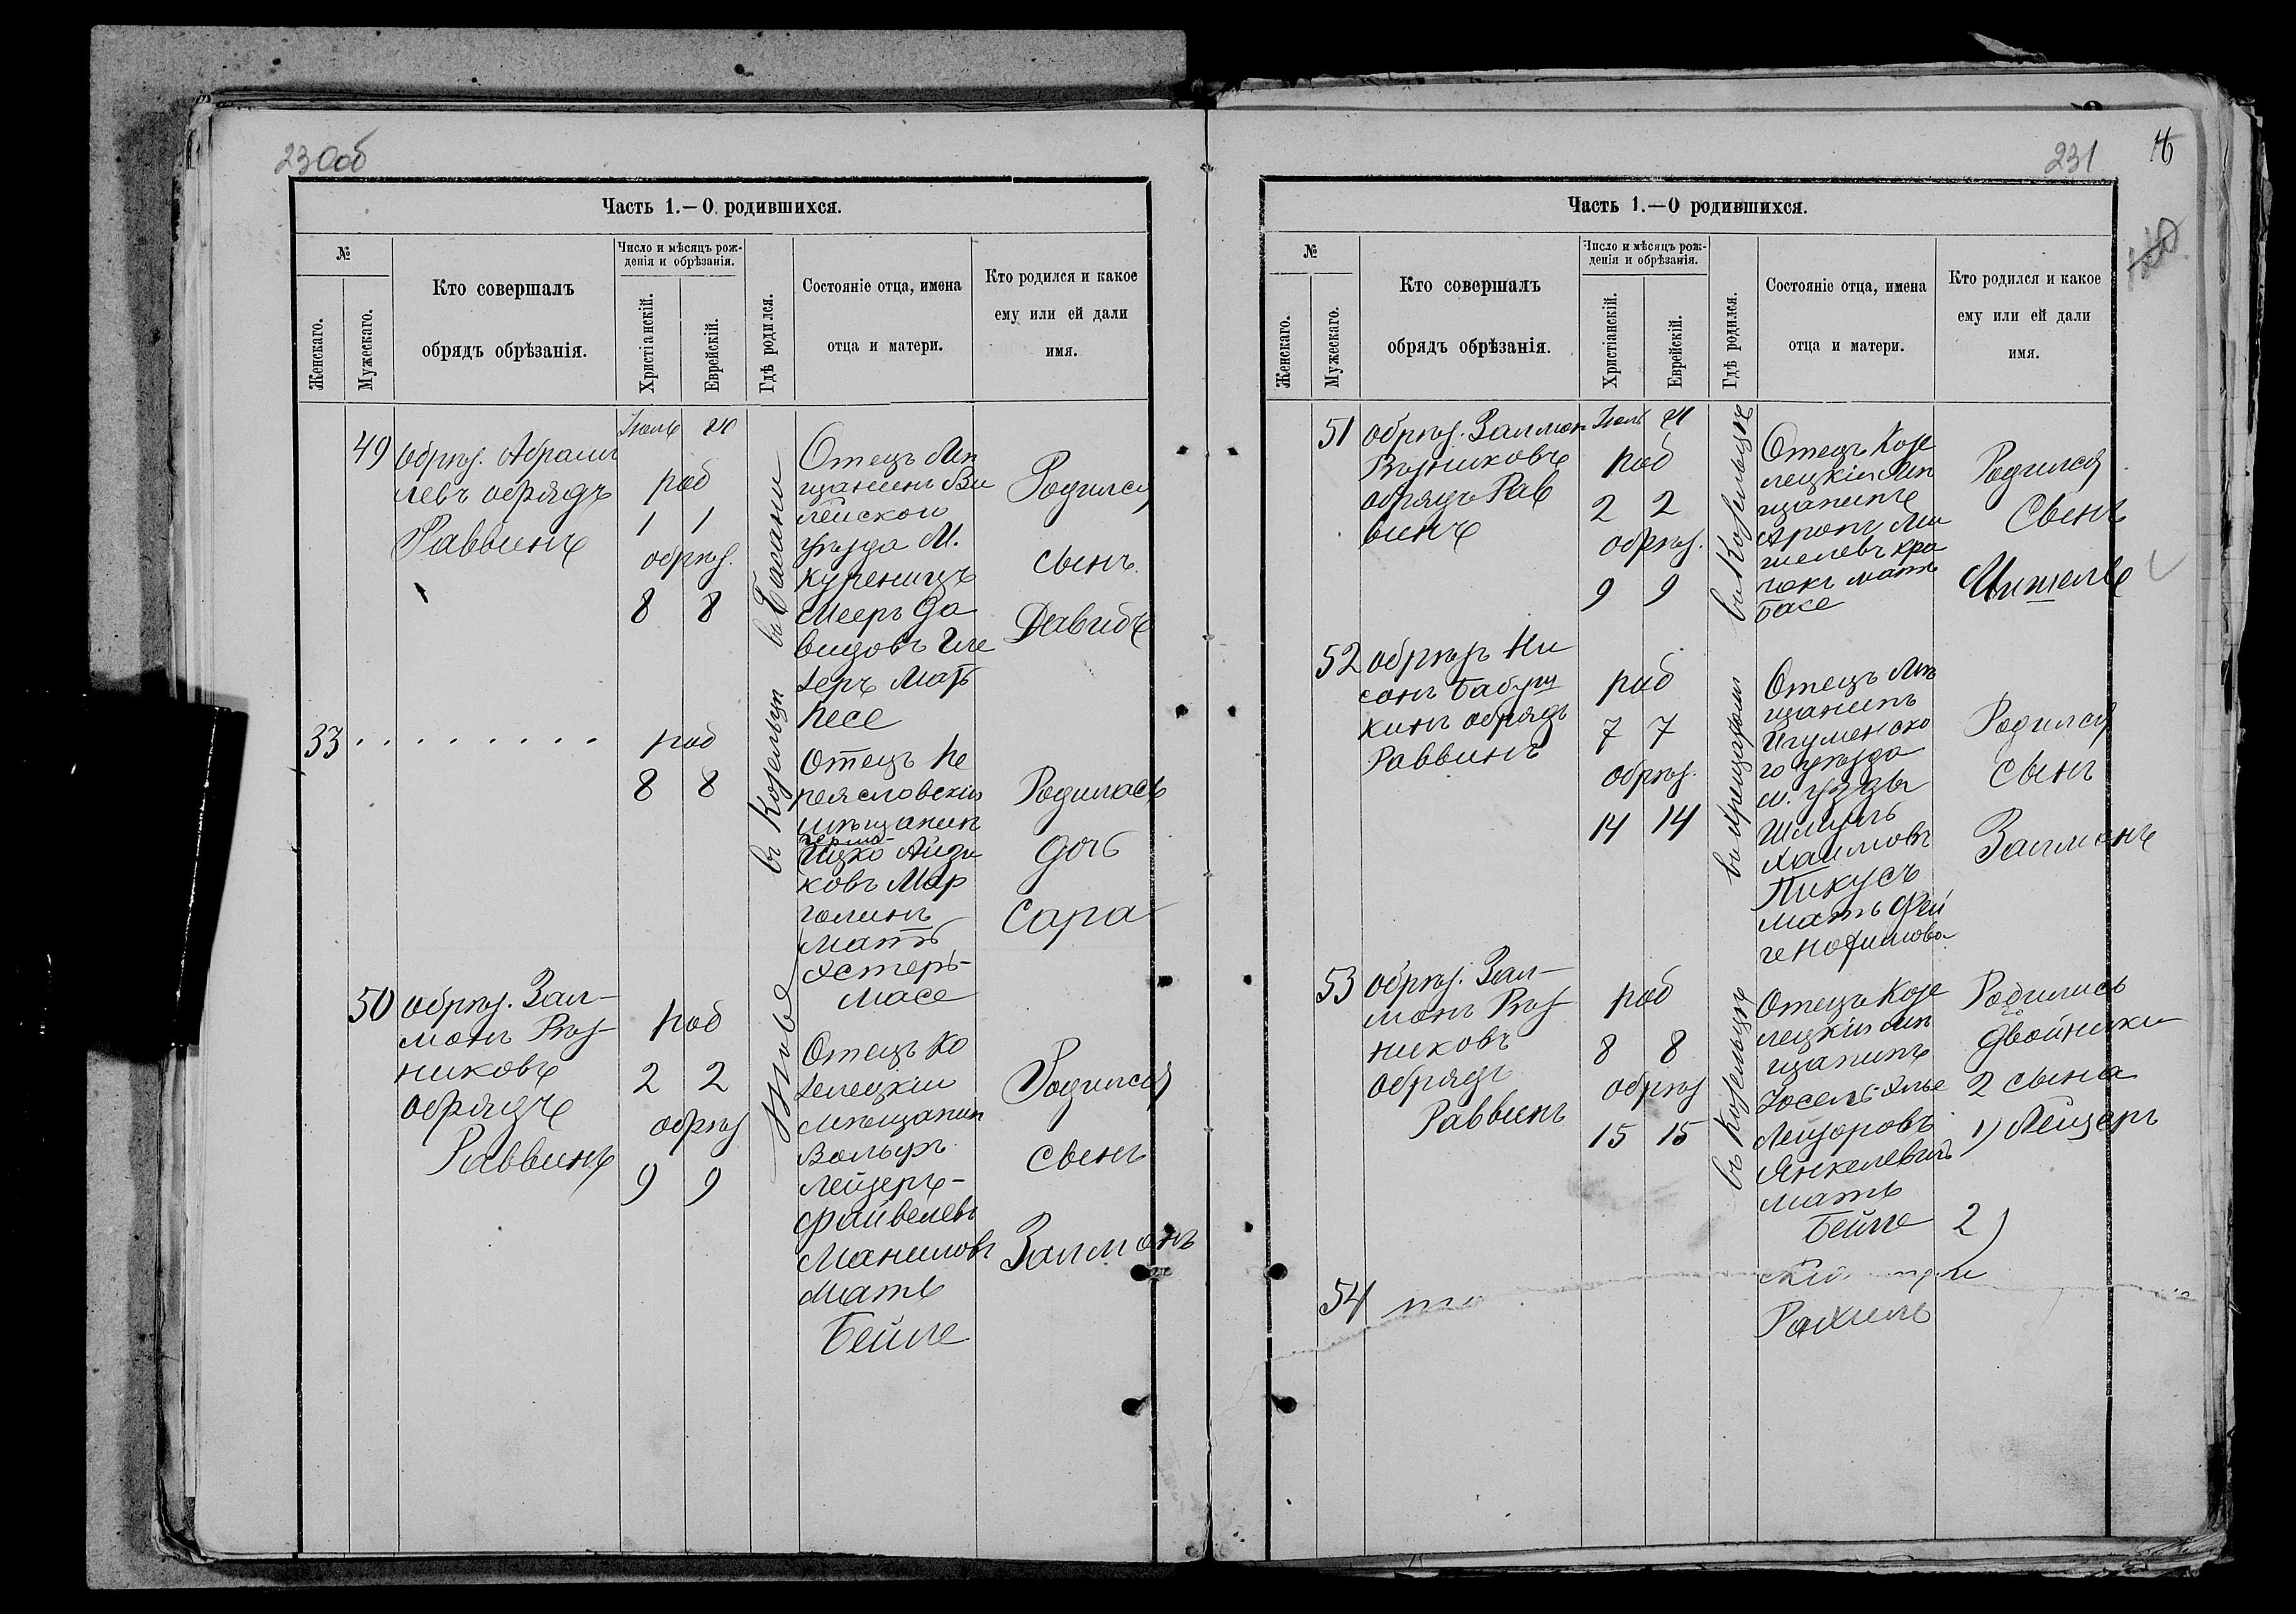 230об
Часть 1.—О родившихся.
№
Женскаго.
Мужескаго.
Кто совершалъ
обрядъ обрѣзанія.
Число и мѣсяцъ рож-
денія и обрѣзанія.
Христіанскій.
Еврейскій.
Гдѣ родился.
Состояніе отца, имена
отца и матери.
Кто родился и какое
ему или ей дали
имя.
49
обрѣз. Абрам
левъ обрядъ
Раввинъ
Іюль
род
1 1
обрѣз.
8 8
въ Басани
Отецъ Мѣ
щанинъ Ви
лейскои
уѣзда М.
Куреницъ
Мееръ Да
видовъ
Мать
Песе
Родился
сынъ
Давидъ
33
род
8 8
въ Козельцѣ
Отецъ Пе
реясловскій
мѣщанин
Ицко Айзи
ковъ Мар
голинъ
Мать
Эстеръ-
Масе
Родилась
дочь
Сара
50
обрѣз. Зал-
монъ Рѣз-
никовъ
обрядъ
Раввинъ
род
2 2
обрѣз
9 9
Отецъ Ко
зелецкій
мѣщанин
Вольфъ
Лейзеръ-
Файвелевъ
Маниловъ
Мать
Бейле
Родился
сынъ
Залмонъ
231
Часть 1.—О родившихся.
№
Женскаго.
Мужескаго.
Кто совершалъ
обрядъ обрѣзанія.
Число и мѣсяцъ рож-
денія и обрѣзанія.
Христіанскій.
Еврейскій.
Гдѣ родился.
Состояніе отца, имена
отца и матери.
Кто родился и какое
ему или ей дали
имя.
51
обрѣз. Залмон
Рѣзниковъ
обрядъ Рав
винъ
Іюль
род
2 2
обрѣз.
9 9
въ Козельцѣ
Отецъ Козе
лецкій Мѣ
щанинъ
Аронъ Ми
шелевъ
мать
Басе
Родился
Сынъ
Мишель
52
обрѣзъ Ни
сонъ Бабуш
кинъ обрядъ
Раввинъ
род
7 7
обрѣз.
14 14
Отецъ Мѣ
щанинъ
Игуменско
го уѣзда
м. Узды
Шмуль
Хаимовъ
Пикусъ
мать Фей
ге Нохимова
Родился
сынъ
Залмонъ
53
обрѣз. Зал-
монъ Рѣз-
никовъ
обрядъ
Раввинъ
род
8 8
обрѣз
15 15
въ Козельцѣ
Отецъ Козе
лецкій Мѣ
щанинъ
Іосель Элье
Лейзоровъ
Янкелевичъ
мать
Бейле
Родились
двойники
2 сына
1) Лейзеръ
2)
54
Рахиль